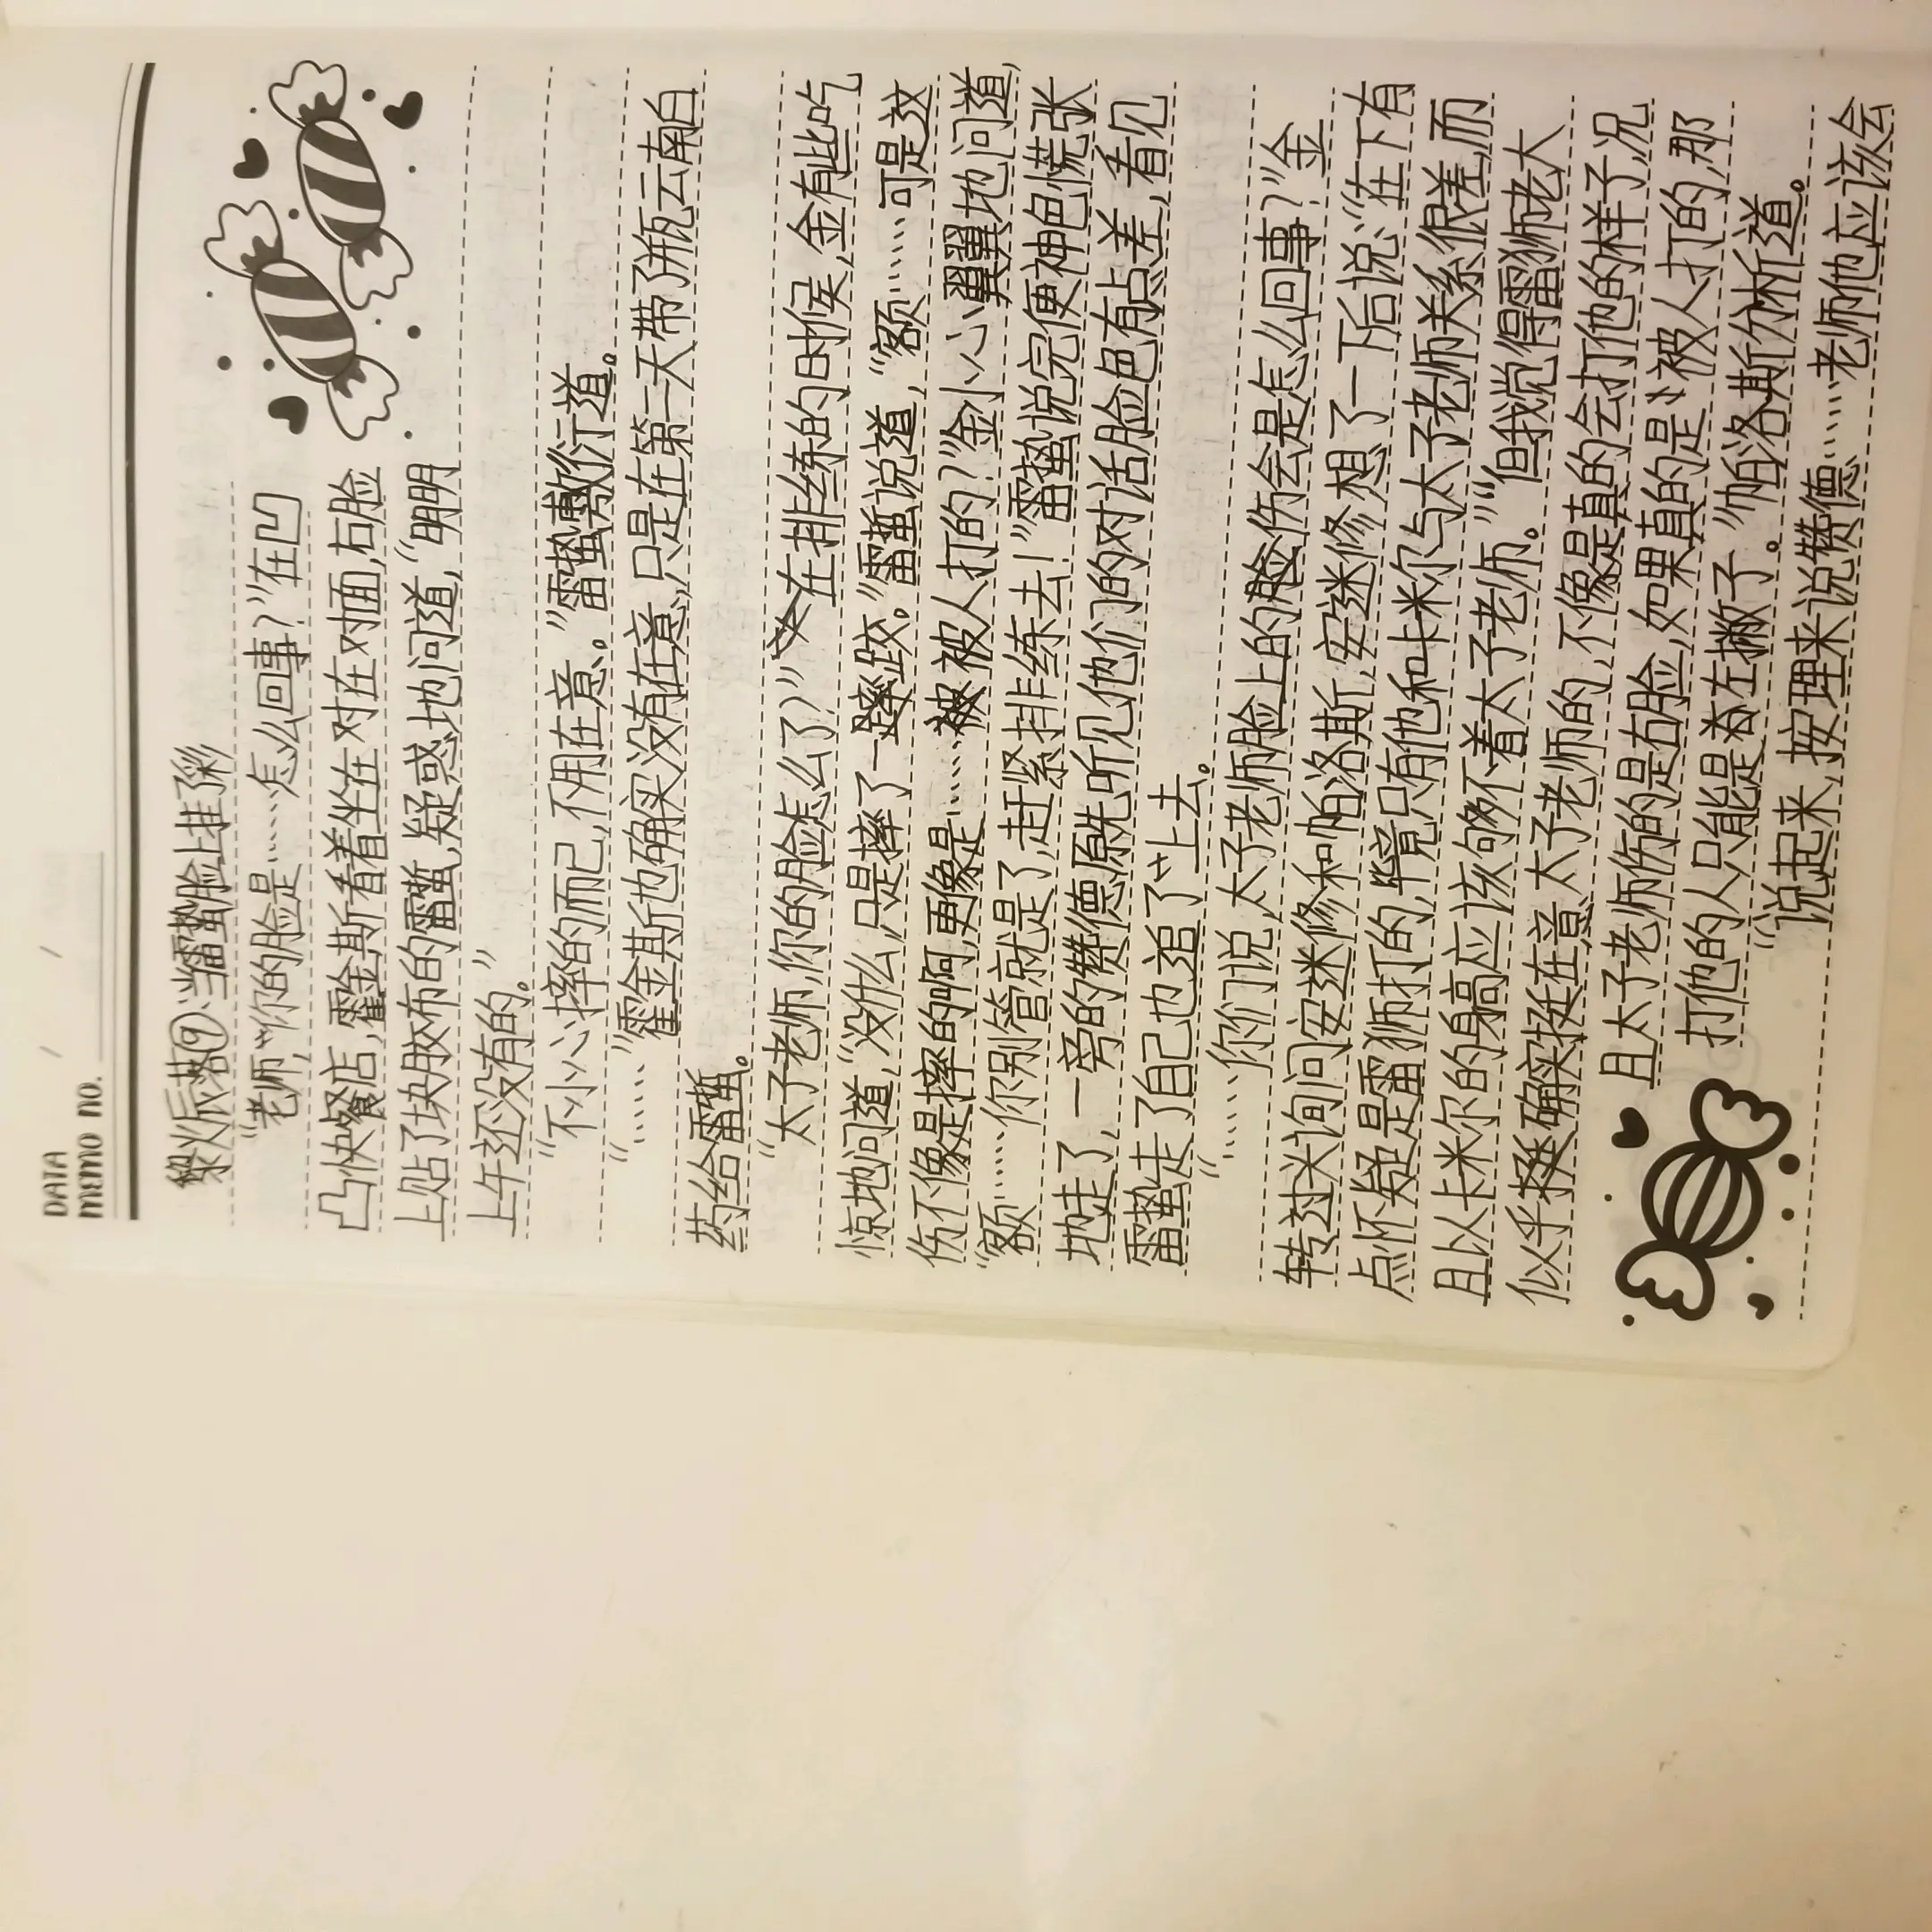 DATA
memo no.
燎辰⑨:当雷蛰脸上挂了彩
“老师,“你的脸是……怎么回事?”在凹
凸快餐店,霍金斯看着坐在对在对面,右脸
上贴了块胶布的雷蛰,疑惑地问道,“明明
上午还没有的。”
“不小心摔的而已,不用在意。”雷蛰敷衍道。
“……”霍金斯也确实没有在意,只是在第二天带了瓶云南白
药给雷蛰。
“太子老师,你的脸怎么了?”在排练的时候,金有些吃
惊地问道,“没什么,只是摔了一跤。”雷蛰说道,“额……可是这
伤不像是摔的啊,更像是……被人打的?”金小心翼翼地问道,
“额……你别管就是了,赶紧排练去!”雷蛰说完便神色慌张
地走了,一旁的赞德原先听见他们的对话脸色有点差,看见
雷蛰走了自己也追了上去。
“……你们说,太子老师脸上的伤会是怎么回事?”金
转过头询问安迷修和帕洛斯,安迷修想了一下后说:“在下有
点怀疑是雷狮打的,毕竟只有他和卡米尔与太子老师关系很差,而
且以卡米尔的身高应该够不着太子老师。”“但我觉得雷狮老大
似乎确实挺在意太子老师的,不像是真的会打他的样子,况
且太子老师伤的是右脸,如果真的是被人打的,那
打他的人只能是左撇子。”帕洛斯分析道。
“说起来,按理来说赞德……老师他应该会